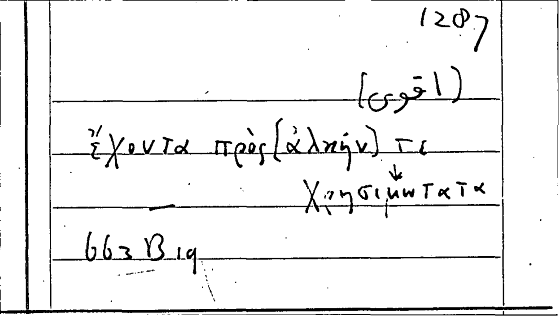 1287
ἔχοντα πρὸς (ἀλκήν) τε
χρησιμωτατα
663 B 19